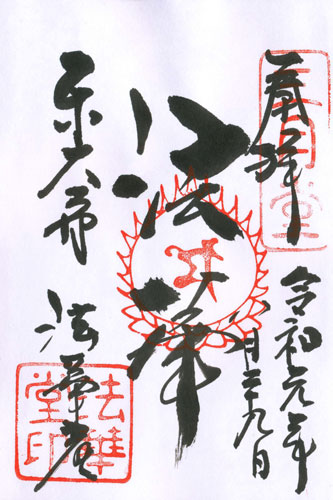 奉拝
三月堂
令和元年
月 九日
法華
東大寺
法華堂
法華堂印